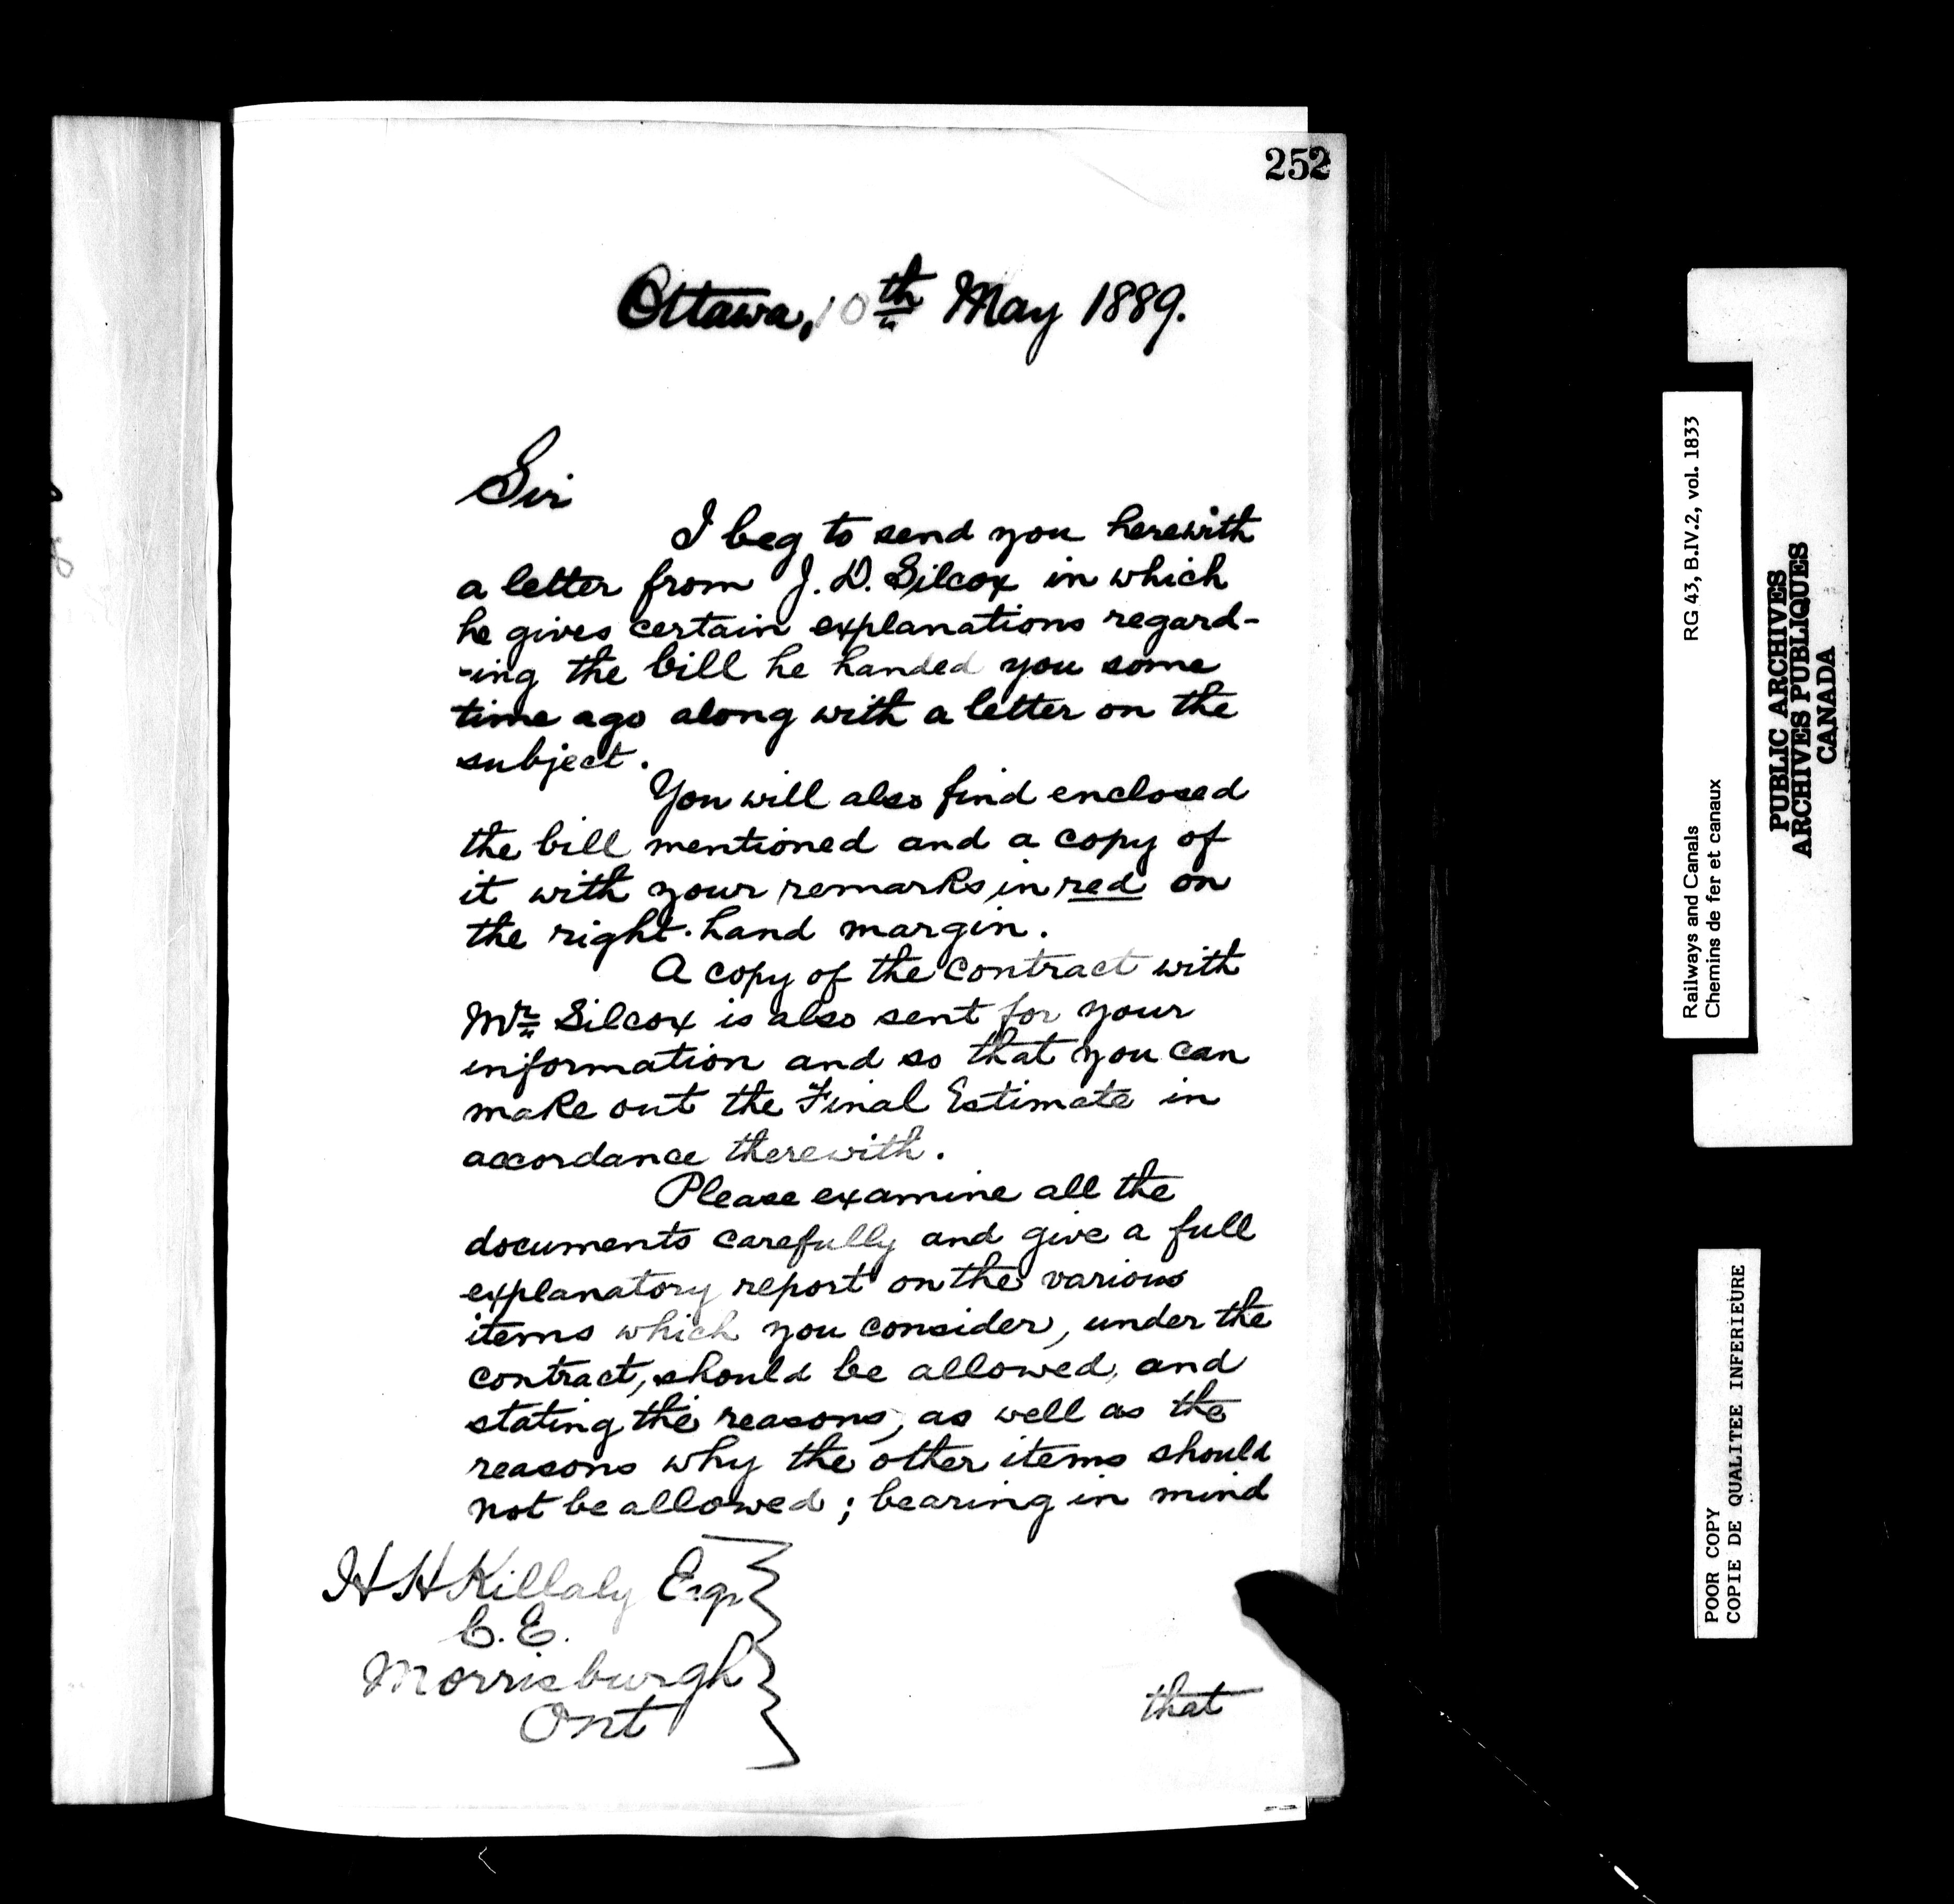 252
Ottawa, 10th May 1889.
Sir
I beg to send you herewith
a letter from J. D. Silcox in which
he gives certain explanations regard-
-ing the bill he handed you some
time ago along with a letter on the
subject.
You will also find enclosed
the bill mentioned and a copy of
it with your remarks in red on
the right-hand margin.
A copy of the contract with
Mr Silcox is also sent for your
information and so that you can
make out the Final Estimate in
accordance therewith.
Please examine all the
documents carefully and give a full
explanatory report on the various
items which you consider, under the
contract, should be allowed, and
stating the reasons, as well as the
reasons why the other items should
not be allowed; bearing in mind
H H Killaly Esqr
C. E.
Morrisburgh
Ont
that
Railways and Canals RG 43, B.IV.2, vol. 1833
Chemins de fer et canaux
PUBLIC ARCHIVES
ARCHIVES PUBLIQUES
CANADA
POOR COPY
COPIE DE QUALITEE INFERIEURE